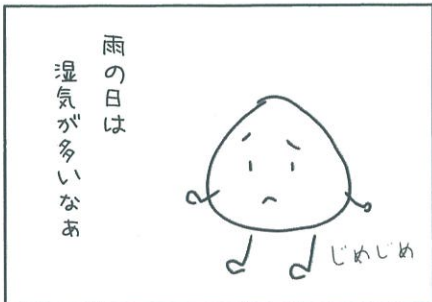 雨の日は
湿気が多いなぁ
じめじめ